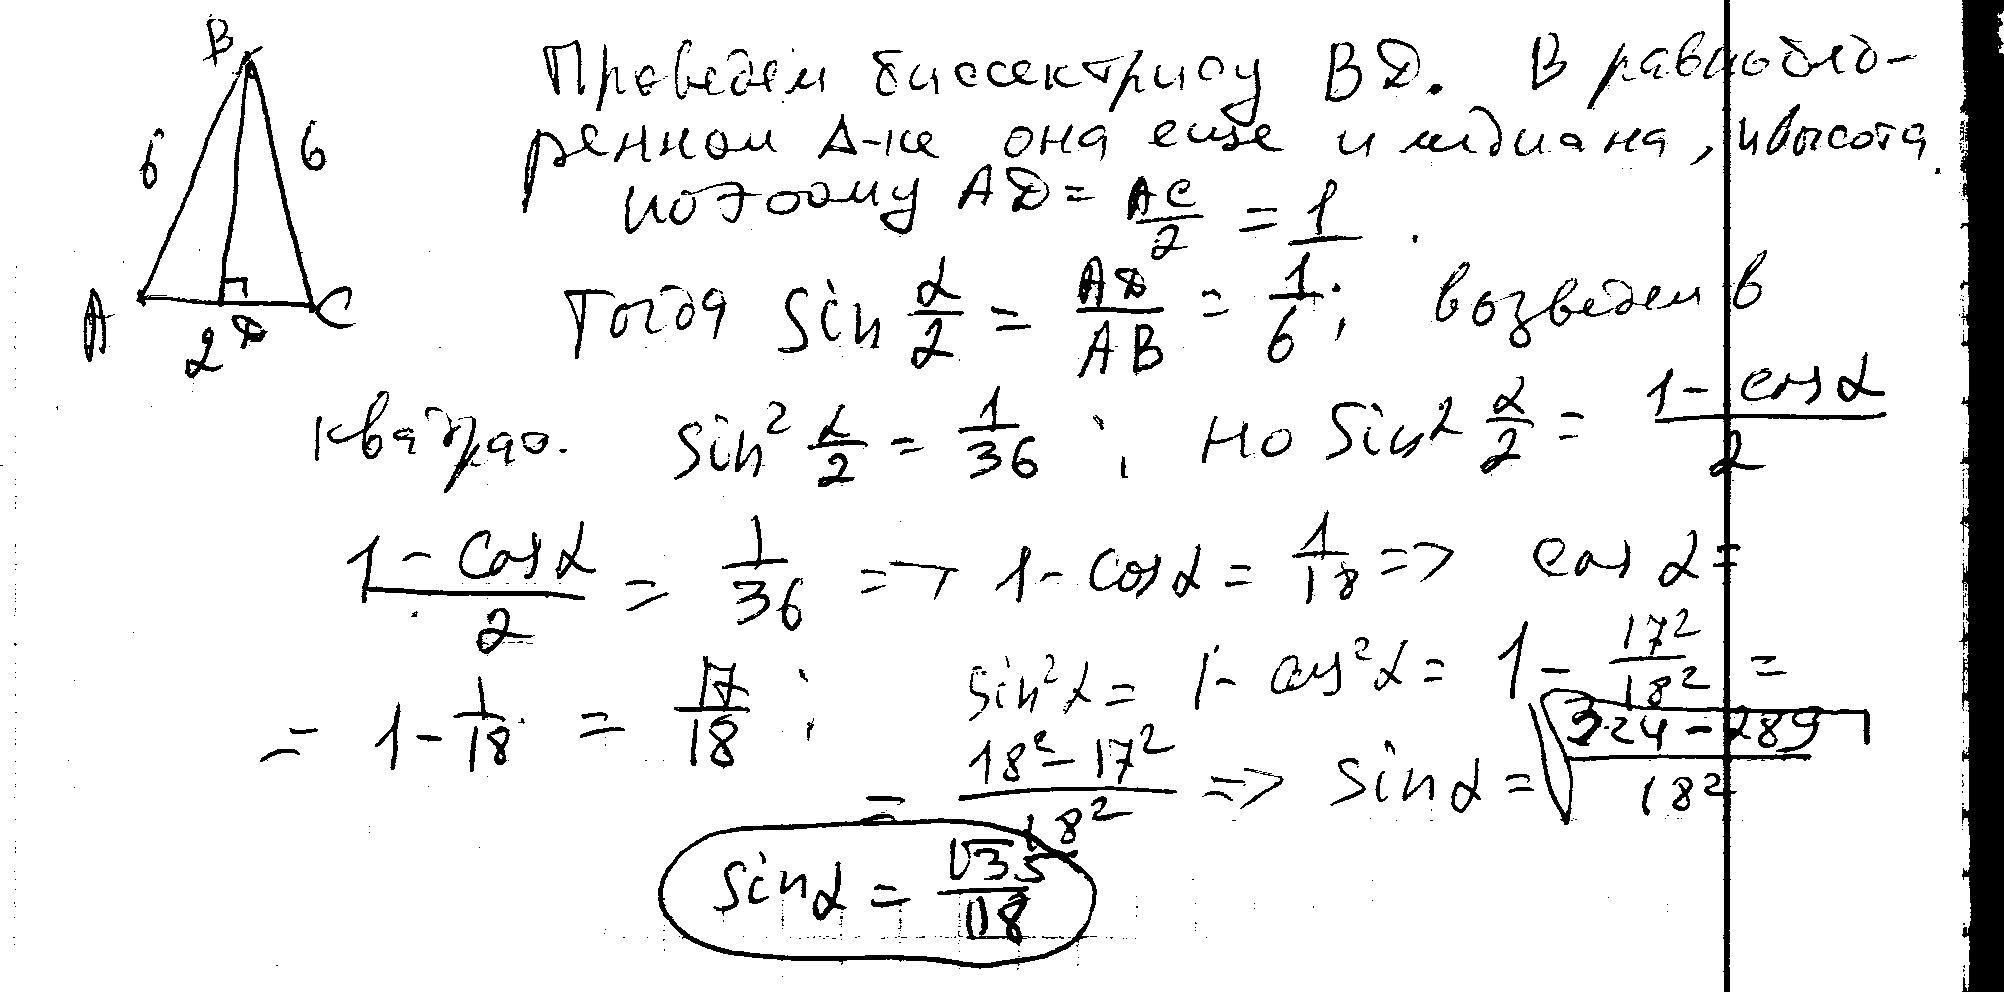 B
6 6
A D C
2
Проведем биссектрису BD. В равнобед-
ренном Δ-ке она еще и медиана, и высота.
поэтому AD = AC/2 = 1.
Тогда sin α/2 = AD/AB = 1/6; возведем в
квадрат. sin² α/2 = 1/36; но sin² α/2 = (1 - cos α)/2
(1 - cos α)/2 = 1/36 => 1 - cos α = 1/18 => cos α =
= 1 - 1/18 = 17/18; sin² α = 1 - cos² α = 1 - 17²/18² =
= (18² - 17²)/18² => sin α = √((324 - 289)/18²)
sin α = √35/18